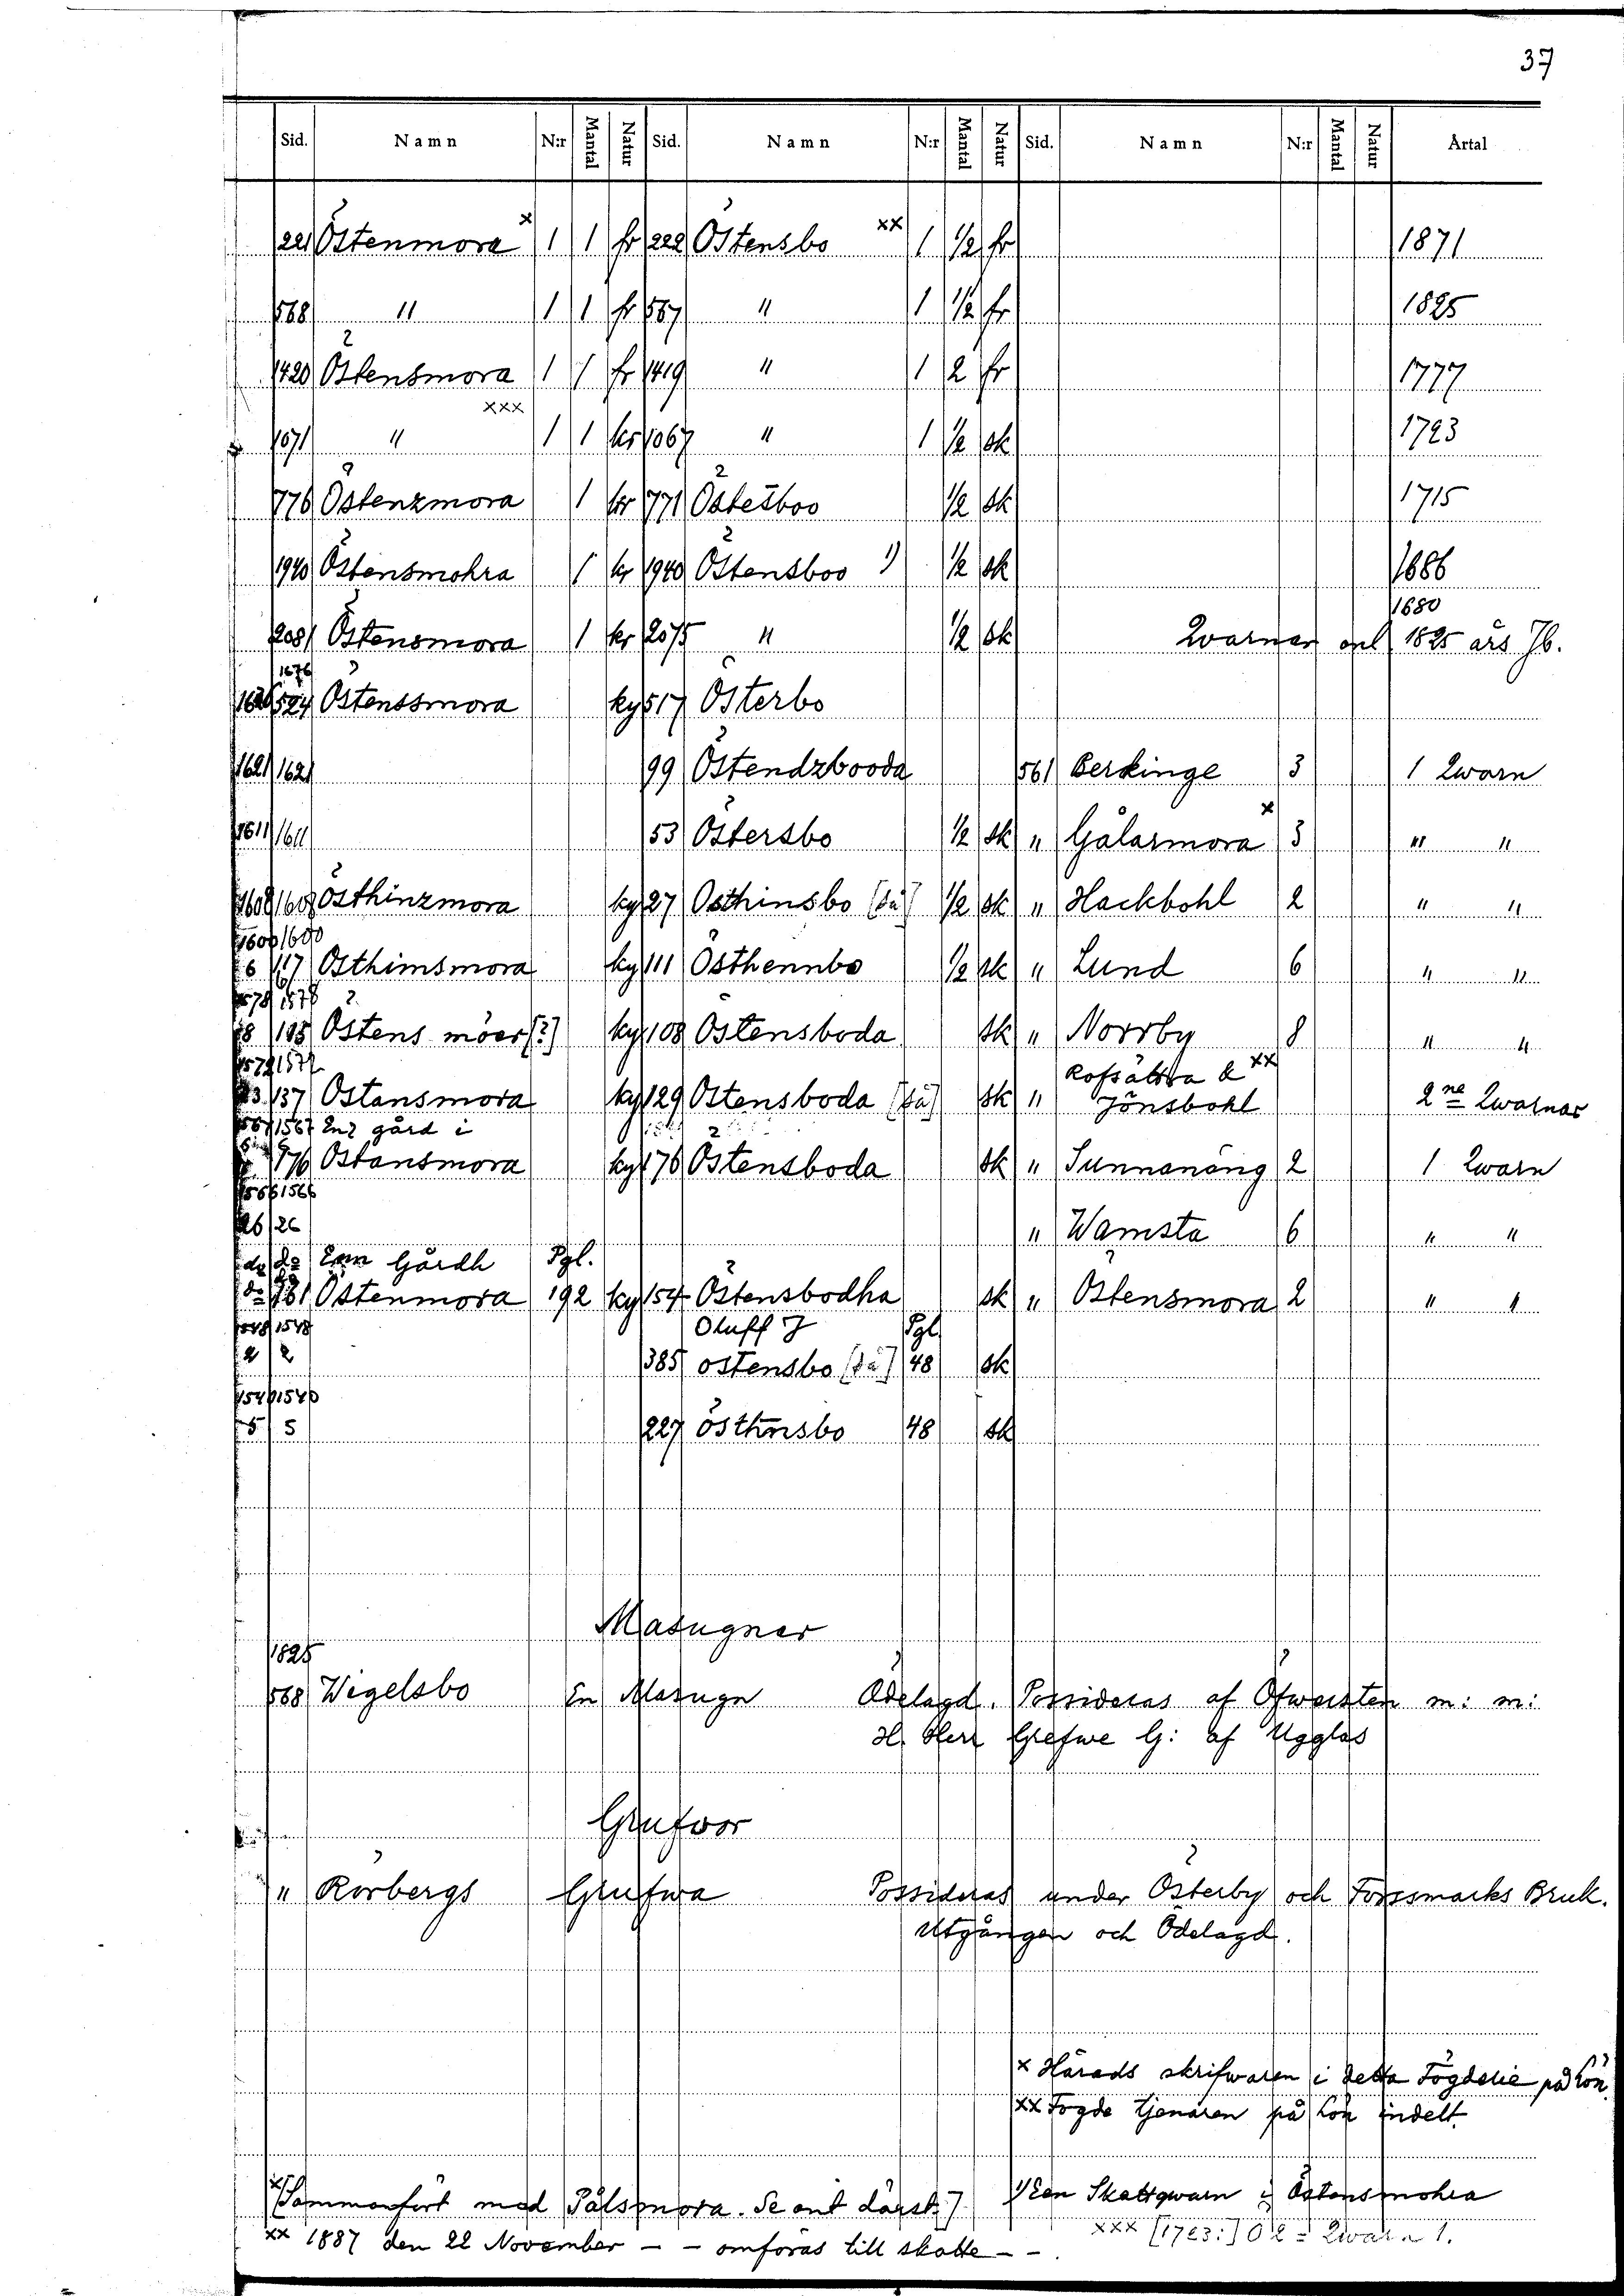 37
Sid. Namn N:r Mantal Natur Sid. Namn N:r Mantal Natur Sid. Namn N:r Mantal Natur Årtal
221 Östenmora x 1 1 fr 222 Östensbo xx 1 1/2 fr 1871
568 " 1 1 fr 567 " 1 1/2 fr 1825
1420 Östensmora 1 1 fr 1419 " 1 2 fr 1777
xxx
1071 " 1 1 kr 1067 " 1 1/2 sk 1723
776 Östenzmora 1 kr 771 Östesboo 1/2 sk 1715
1940 Östensmohra 1 kr 1940 Östensboo 1) 1/2 sk 1686
1680
2081 Östensmora 1 kr 2075 " 1/2 sk Qvarnar enl 1825 års Jb.
1676
524 Östenssmora ky 517 Österbo
1621 1621 99 Östendzbooda 561 Berkinge 3 1 Qwarn
1611 1611 53 Östersbo 1/2 sk " Gålarmora x 3 " "
1608 1608 Östhinzmora ky 27 Osthinsbo [så] 1/2 sk " Hackbohl 2 " "
1600 1600
6 117 Osthimsmora ky 111 Östhennbo 1/2 sk " Lund 6 " "
1578 1578
8 113 Östens möer [?] ky 108 Östensboda sk " Norrby 8 " "
1572 1572 Rofsättra & xx
137 Ostansmora ky 129 Ostensboda [så] sk " Jönsbohl 2ne Qwarnar
1567 1567 En gård i
176 Ostansmora ky 176 Östensboda sk " Sunnanäng 2 1 Qwarn
1566 1566
26 26 " Wamsta 6 " "
do do Enn Gårdh Pgl.
do 181 Östenmora 192 ky 154 Östensbodha sk " Östensmora 2 " "
1548 1548 Oluff J Pgl
2 2 385 ostensbo [så] 48 sk
1540 1540
5 5 227 östhnsbo 48 sk
Masugnar
1825
568 Wigelsbo En Masugn Ödelagd. Possideras af Öfwersten m: m:
H. Herr Grefwe G: af Ugglas
Grufwor
" Rörbergs Grufwa Possideras under Österby och Forssmarks Bruk.
Utgången och Ödelagd.
x Härads skrifwaren i detta Fögderie på Lön.
xx Fogde tjenaren på Lön indelt.
x [Sammanfört med Pålsmora. Se ant därst.] 1) Een Skattqwarn i Östensmohra
xx 1887 den 22 November - - omföras till skatte - - . xxx [1723:] Ö 2 = Qwarn 1.